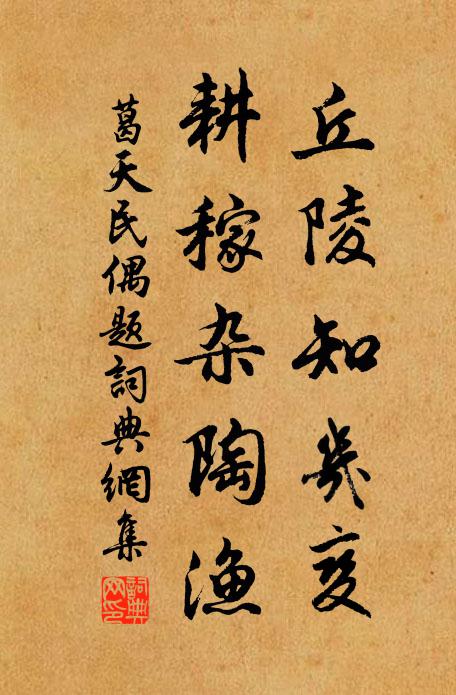 丘陵知幾变
耕稼杂陶渔
葛天民偶题詞典網集
詞典网印